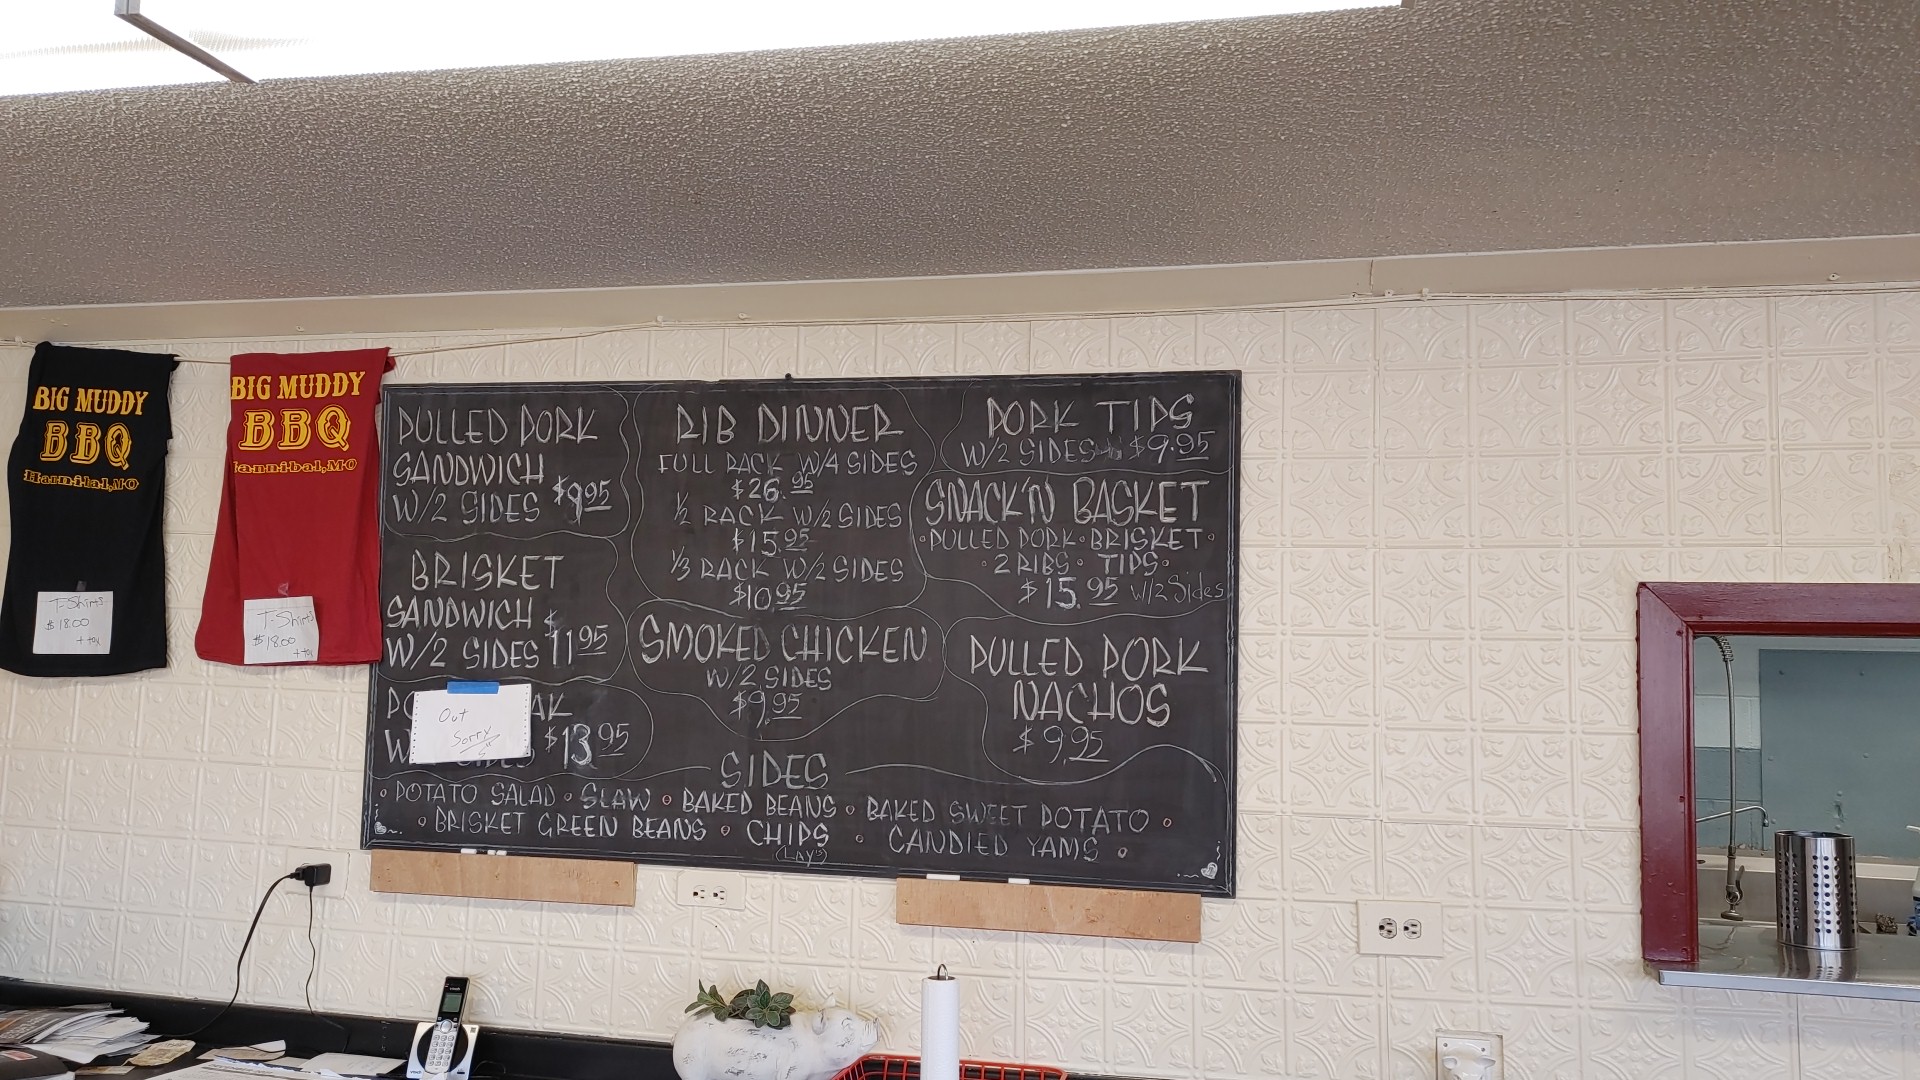 BIG MUDDY
BBQ
Hannibal, MO
T-Shirts
$18.00
+ tax
BIG MUDDY
BBQ
Hannibal, MO
T-Shirts
$18.00
+ tax
PULLED PORK
SANDWICH
W/2 SIDES $9.95
BRISKET
SANDWICH
W/2 SIDES $11.95
Out
Sorry
$13.95
RIB DINNER
FULL RACK W/4 SIDES
$26.95
1/2 RACK W/2 SIDES
$15.95
1/3 RACK W/2 SIDES
$10.95
SMOKED CHICKEN
W/2 SIDES
$9.95
PORK TIPS
W/2 SIDES $9.95
SNACK'N BASKET
• PULLED PORK • BRISKET •
• 2 RIBS • TIPS •
$15.95 W/2 Sides
PULLED PORK
NACHOS
$9.95
SIDES
• POTATO SALAD • SLAW • BAKED BEANS • BAKED SWEET POTATO •
• BRISKET GREEN BEANS • CHIPS • CANDIED YAMS •
(LAY'S)